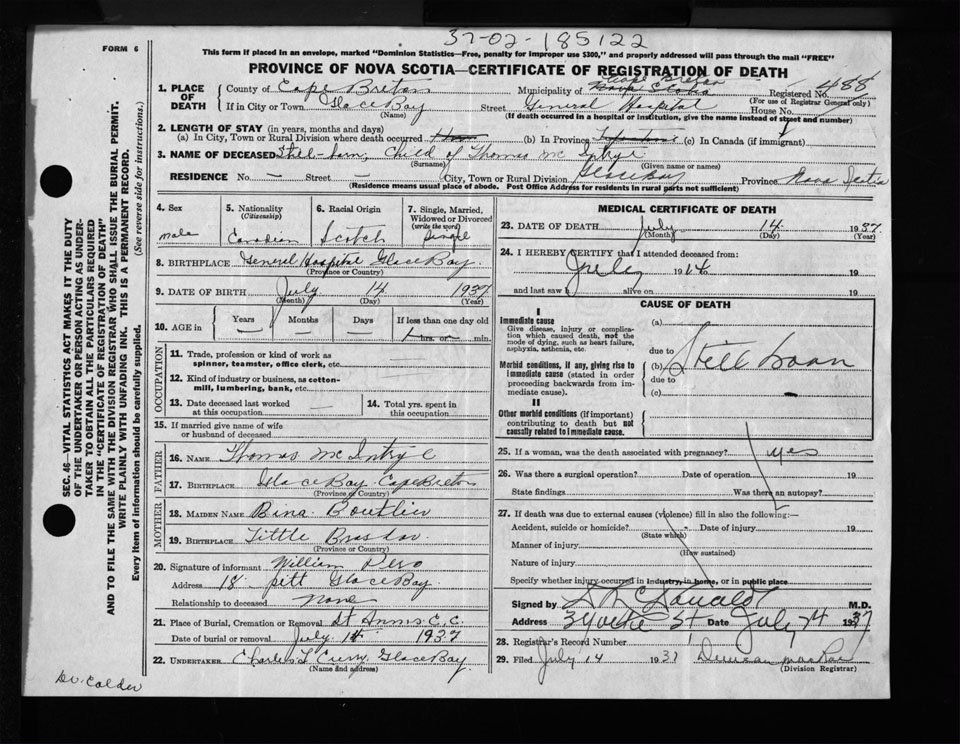 37-02-185122
FORM 6
This form if placed in an envelope, marked "Dominion Statistics—Free, penalty for improper use $300," and properly addressed will pass through the mail "FREE"
PROVINCE OF NOVA SCOTIA—CERTIFICATE OF REGISTRATION OF DEATH
SEC. 46—VITAL STATISTICS ACT MAKES IT THE DUTY
OF THE UNDERTAKER OR PERSON ACTING AS UNDER-
TAKER TO OBTAIN ALL THE PARTICULARS REQUIRED
IN THE "CERTIFICATE OF REGISTRATION OF DEATH"
AND TO FILE THE SAME WITH THE DIVISION REGISTRAR WHO SHALL ISSUE THE BURIAL PERMIT.
WRITE PLAINLY WITH UNFADING INK. THIS IS A PERMANENT RECORD.
Every item of information should be carefully supplied. (See reverse side for instructions.)
1. PLACE OF DEATH
County of Cape Breton Municipality of Cape Breton Nova Scotia Registered No. 488
(For use of Registrar General only)
If in City or Town Glace Bay Street General Hospital House No.
(Name) (If death occurred in a hospital or institution, give the name instead of street and number)
2. LENGTH OF STAY (in years, months and days)
(a) In City, Town or Rural Division where death occurred (b) In Province (c) In Canada (if immigrant)
3. NAME OF DECEASED Still-born, Child of Thomas Mc Intyre
(Surname) (Given name or names)
RESIDENCE No. — Street — City, Town or Rural Division Glace Bay Province Nova Scotia
(Residence means usual place of abode. Post Office Address for residents in rural parts not sufficient)
4. Sex Male
5. Nationality (Citizenship) Canadian
6. Racial Origin Scotch
7. Single, Married, Widowed or Divorced (write the word) Single
8. BIRTHPLACE General Hospital Glace Bay.
(Province or Country)
9. DATE OF BIRTH July 14 1937
(Month) (Day) (Year)
10. AGE in Years — Months — Days — If less than one day old hrs. or min.
OCCUPATION
11. Trade, profession or kind of work as spinner, teamster, office clerk, etc.
12. Kind of industry or business, as cotton-mill, lumbering, bank, etc.
13. Date deceased last worked at this occupation
14. Total yrs. spent in this occupation
15. If married give name of wife or husband of deceased
FATHER
16. NAME Thomas Mc Intyre
17. BIRTHPLACE Glace Bay. Cape Breton
(Province or Country)
MOTHER
18. MAIDEN NAME Bina Boutlier
19. BIRTHPLACE Little Bras dor
(Province or Country)
20. Signature of informant William
Address 18 pitt Glace Bay.
Relationship to deceased none
21. Place of Burial, Cremation or Removal St Anns C.C.
Date of burial or removal July 14 1937
22. UNDERTAKER Charles L Curry Glace Bay
(Name and address)
MEDICAL CERTIFICATE OF DEATH
23. DATE OF DEATH July 14 1937
(Month) (Day) (Year)
24. I HEREBY CERTIFY that I attended deceased from:
July 14 19 to 19
and last saw h alive on 19
CAUSE OF DEATH
I
Immediate cause
Give disease, injury or complication which caused death, not the mode of dying, such as heart failure, asphyxia, asthenia, etc.
Morbid conditions, if any, giving rise to immediate cause (stated in order proceeding backwards from immediate cause).
II
Other morbid conditions (if important) contributing to death but not causally related to immediate cause.
(a)
due to
(b) Still born
due to
(c)
25. If a woman, was the death associated with pregnancy? yes
26. Was there a surgical operation? Date of operation 19
State findings Was there an autopsy?
27. If death was due to external causes (violence) fill in also the following:—
Accident, suicide or homicide? Date of injury 19
(State which)
Manner of injury
(How sustained)
Nature of injury
Specify whether injury occurred in industry, in home, or in public place
Signed by McDonald M.D.
Address St Date July 14 1937
28. Registrar's Record Number
29. Filed July 14 1937 Duncan MacRae
(Division Registrar)
Dr. Calder